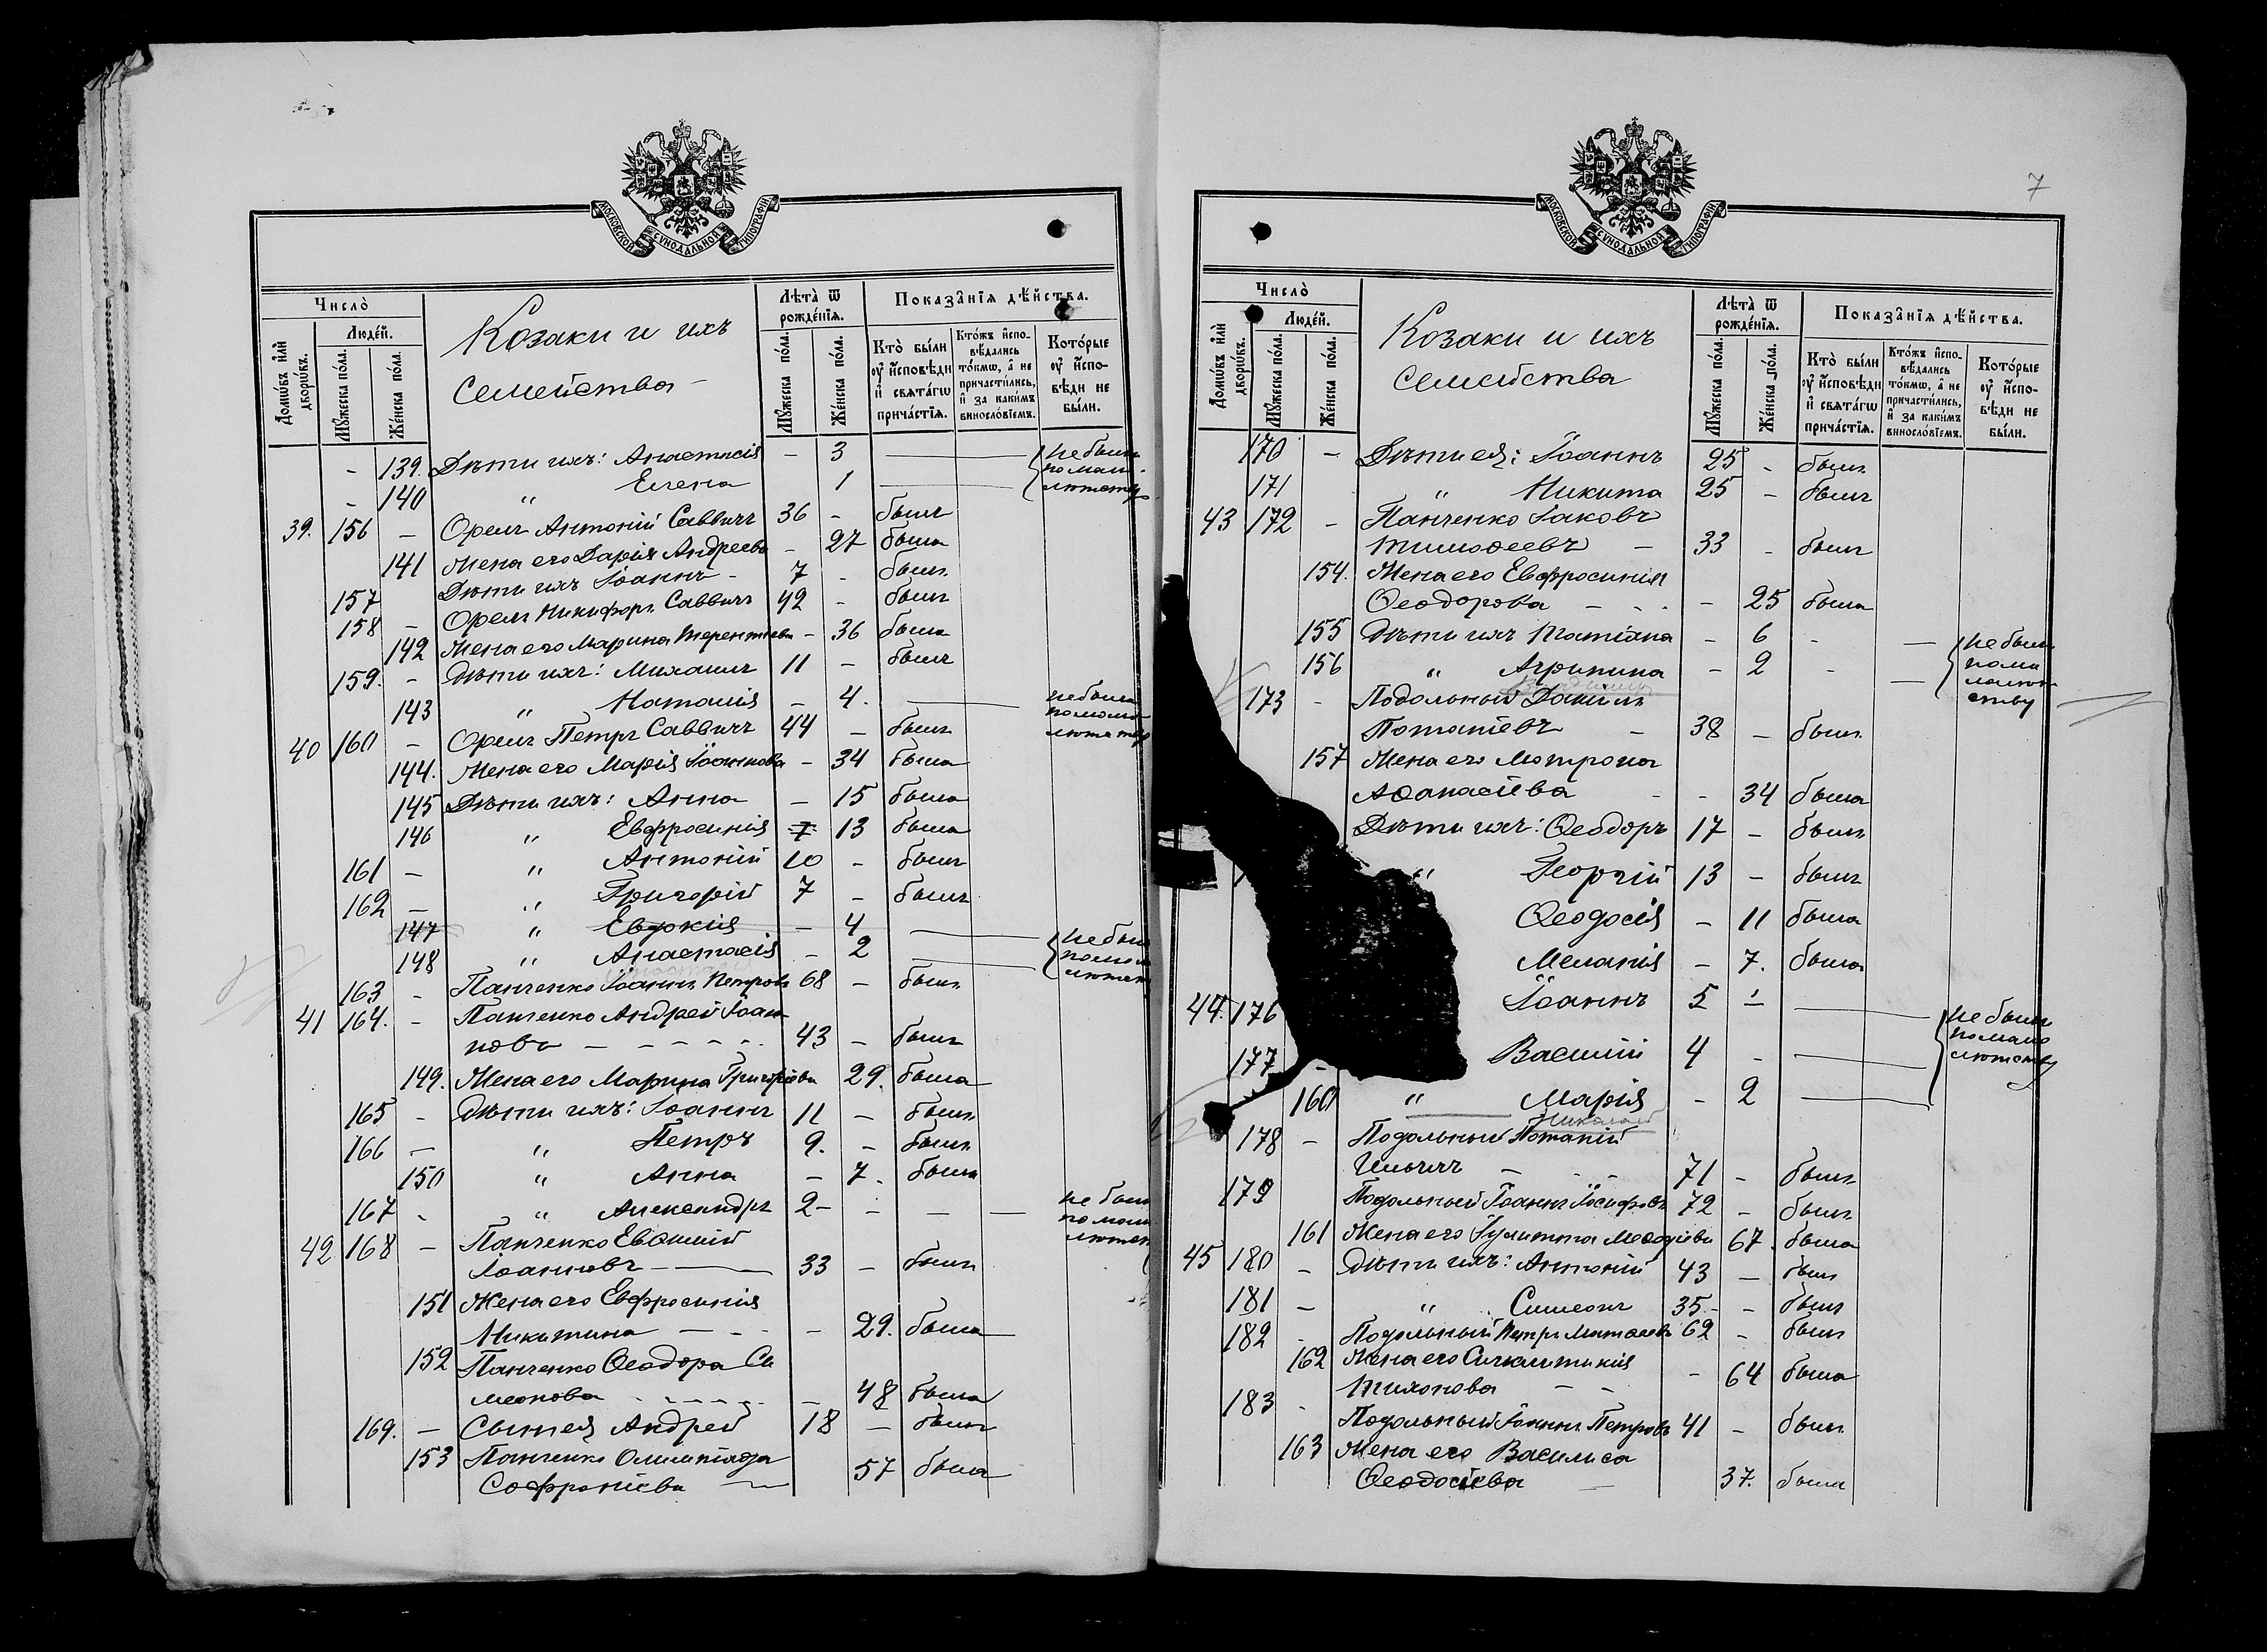 МОСКОВСКОЙ СУНОДАЛЬНОЙ ТИПОГРАФІИ
Число̀
Люде́й.
Домѡ́въ и҆лѝ дворѡ́въ.
Мꙋ́жеска по́ла.
Же́нска по́ла.
Козаки и ихъ
семейства
Лѣ́та ѿ рожде́нїя.
Мꙋ́жеска по́ла.
Же́нска по́ла.
Показа̑нїя дѣ́йства.
Кто̀ бы́ли ᲂу҆ и҆сповѣ́ди и҆ свѧта́гѡ прича́стїѧ.
Кто́жъ и҆спо-вѣ́дались то́кмѡ, а҆ не причасти́лись, и҆ за каки́мъ винословїемъ.
Кото́рые ᲂу҆ и҆спо-вѣ́ди не бы́ли.
- 139. Дѣти ихъ: Анастасія - 3
- 140 " Елена 1
не были по мало-лѣтству
39. 156 - Орелъ Антоній Саввичъ 36 - былъ
141 Жена его Дарія Андреева - 27 была
157 Дѣти ихъ Іоаннъ - 7 - былъ
158 - Орелъ Никифоръ Саввичъ 42 - былъ
142 Жена его Марина Терентіева - 36 была
159. - Дѣти ихъ: Михаилъ 11 - былъ
143 " Наталія - 4.
не была по мало-лѣтству
40 160 - Орелъ Петръ Саввичъ 44 - былъ
144. Жена его Марія Іоаннова - 34 была
145 Дѣти ихъ: Анна - 15 была
146 " Евфросинія 7 13 была
161 - " Антоній 10 - былъ
162 - " Григорій 7 - былъ
147 " Евдокія - 4
148 " Анастасія - 2
163 - Панченко Іоаннъ Петровъ 68 - былъ
41 164. - Панченко Андрей Іоан-
новъ 43 - былъ
149. Жена его Марина Григоріева 29. была
165 - Дѣти ихъ: Іоаннъ 11 - былъ
166 - " Петръ 9. - былъ
150 " Анна - 7. была
167 - " Александръ 2 - - - -
42 168 - Панченко Евѳимій
Іоанновъ 33 - былъ
151 Жена его Евфросинія
Никитина - 29. была
152 Панченко Ѳеодора Си
меонова - 48 была
169. - Сынъ ея Андрей 18 - былъ
153 Панченко Олимпіада
Софроніева 57 была
7
МОСКОВСКОЙ СУНОДАЛЬНОЙ ТИПОГРАФІИ
Число̀
Люде́й.
Домѡ́въ и҆лѝ дворѡ́въ.
Мꙋ́жеска по́ла.
Же́нска по́ла.
Козаки и ихъ
семейства
Лѣ́та ѿ рожде́нїя.
Мꙋ́жеска по́ла.
Же́нска по́ла.
Показа̑нїя дѣ́йства.
Кто̀ бы́ли ᲂу҆ и҆сповѣ́ди и҆ свѧта́гѡ прича́стїѧ.
Кто́жъ и҆спо-вѣ́дались то́кмѡ, а҆ не причасти́лись, и҆ за каки́мъ винословїемъ.
Кото́рые ᲂу҆ и҆спо-вѣ́ди не бы́ли.
170 - Дѣти ея: Іоаннъ 25 - былъ
171 " Никита 25 - былъ
43 172 - Панченко Іаковъ
Тимоѳеевъ - 33 - былъ
154. Жена его Евфросинія
Ѳеодорова - 25 была
155 Дѣти ихъ Татіана - 6 -
156 " Агрипина - 2 -
не были по мало лѣт ству
173 - Подольный Даніилъ
Потапіевъ - 38 - былъ
157 Жена его Матрона
Аѳанасіева - 34 была
Дѣти ихъ: Ѳеодоръ 17 - былъ
" Георгій 13 - былъ
Ѳеодосія - 11 была
Меланія - 7. была
44. 176 Іоаннъ 5 -
177 - Василій 4 -
160 " Марія - 2
не были по мало лѣтству
Николай
178 - Подольный Потапій
Ильичъ - 71 - былъ
179 Подольный Іоаннъ Іосифовъ 72 - былъ
161 Жена его Іулитта Меѳодіева 67 была
45 180 - Дѣти ихъ: Антоній 43 - былъ
181 - " Симеонъ 35 - былъ
182 - Подольный Петръ Матѳеевъ 62 - былъ
162 Жена его Синклитикія
Тихонова - 64 была
183 - Подольный Іоаннъ Петровъ 41 - былъ
163 Жена его Василиса
Ѳеодосіева - 37. была